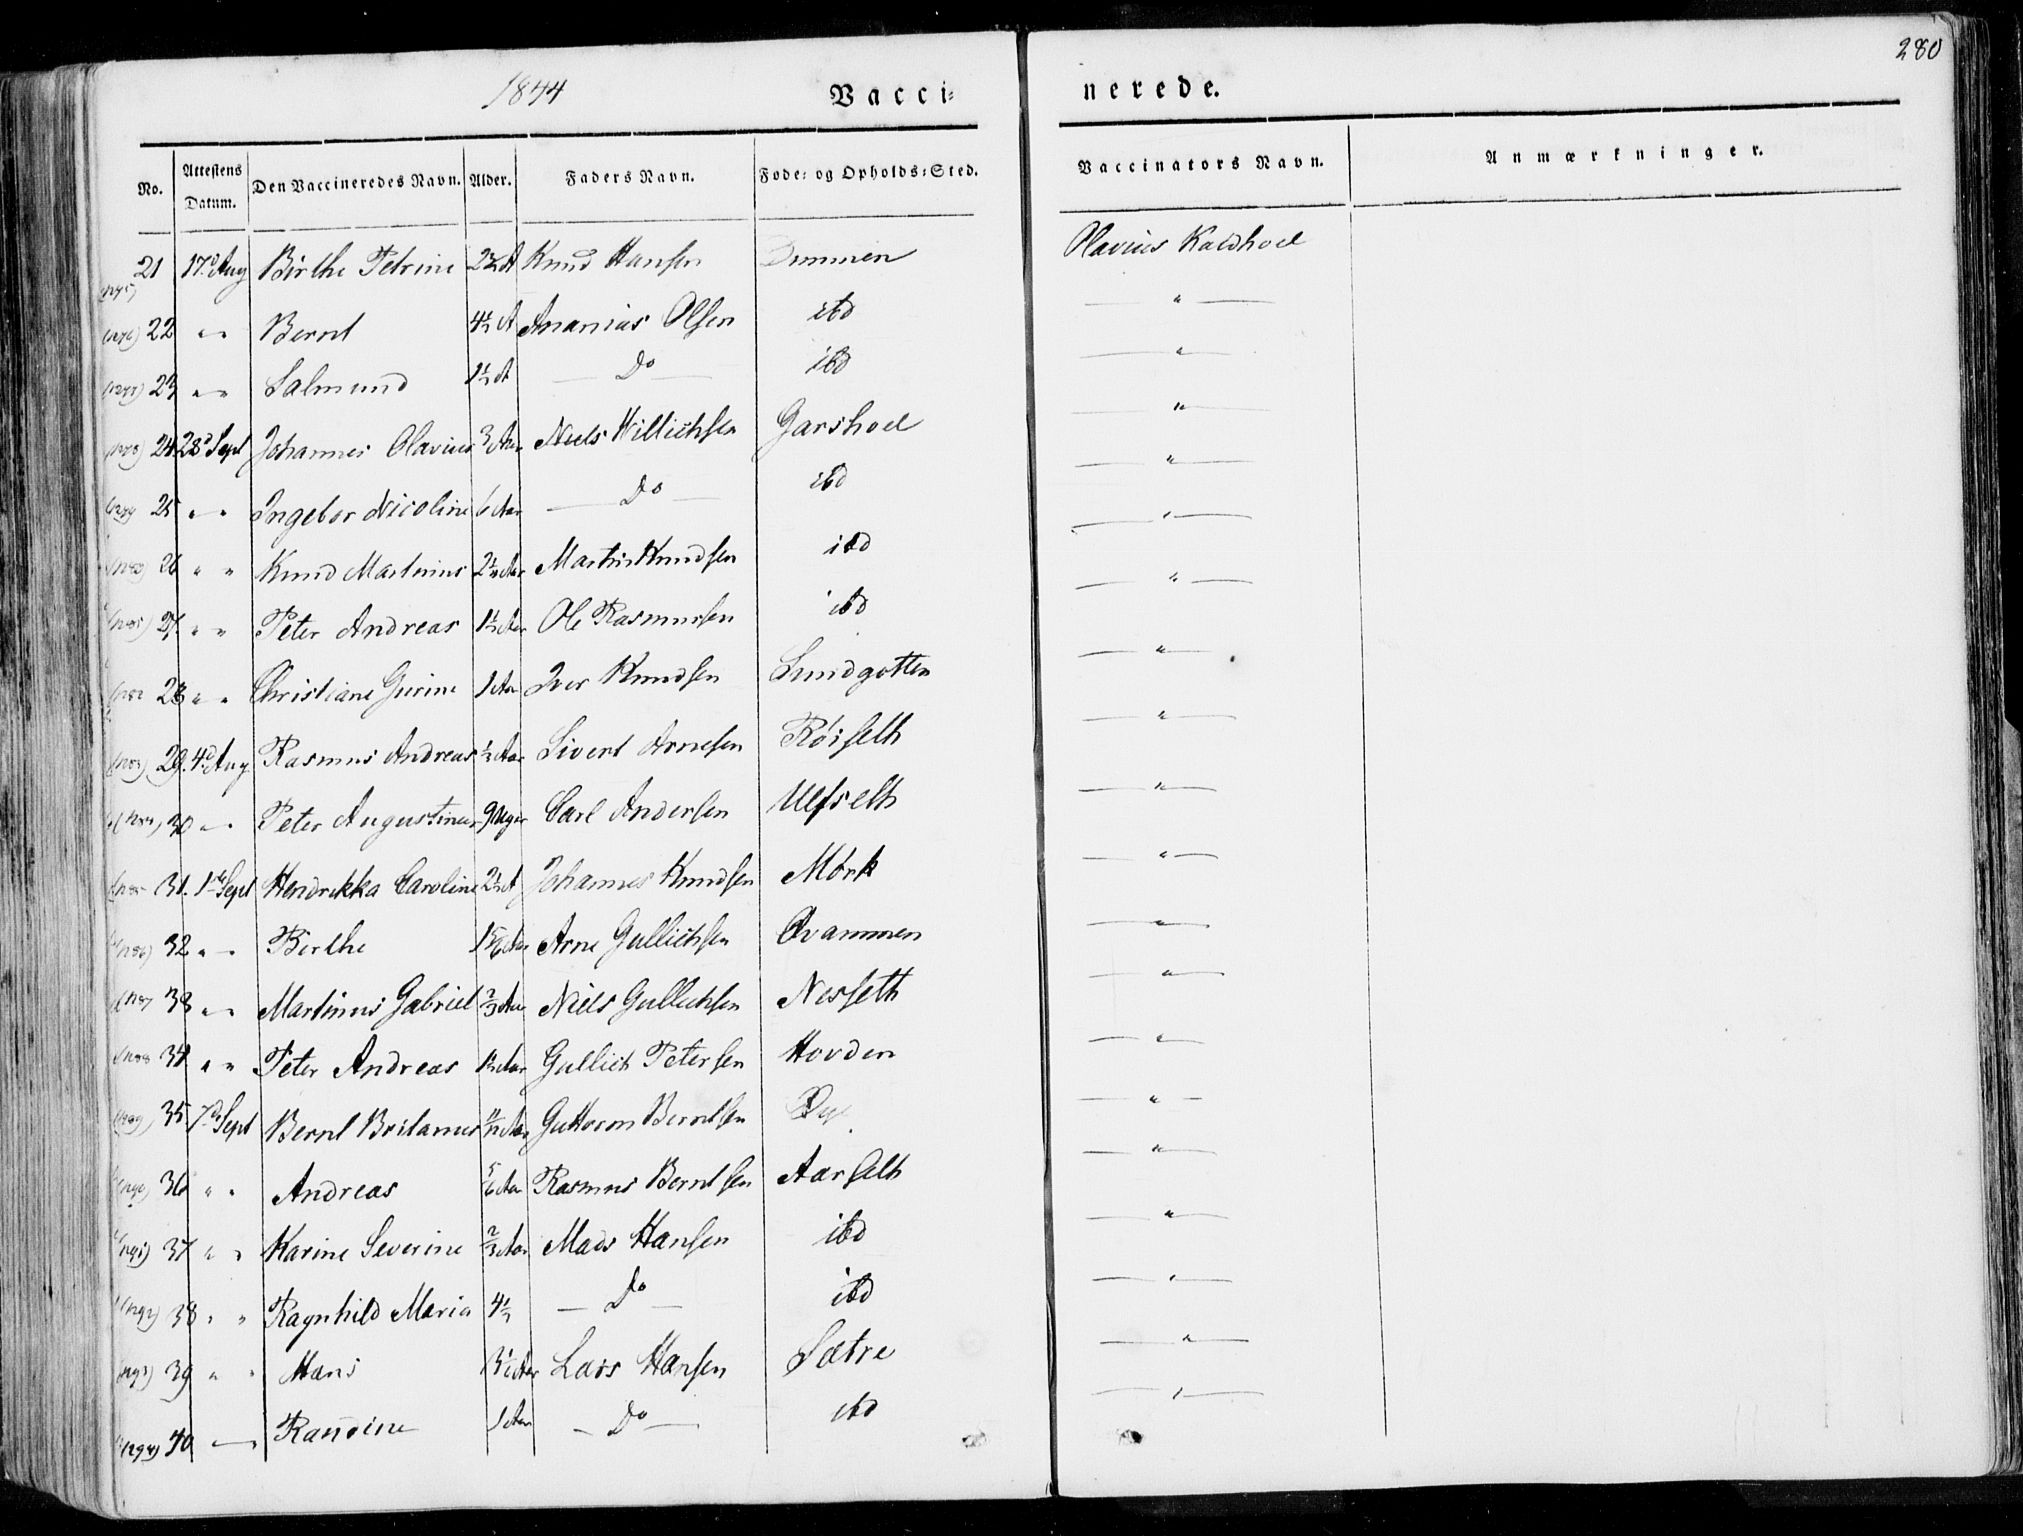 280
1844 Vacci= nerede.
No. Attestens Datum. Den Vaccineredes Navn. Alder. Faders Navn. Føde= og Opholds=Sted. Vaccinators Navn. Anmærkninger.
21 17d Aug Birthe Petrine 2½ A Knud Hansen Olavius Kaldhoel
22 " " Bernt 4½ A Ananias Olsen ibd "
23 " " Salmund 1½ A Do ibd "
24 28d Sept Johannes Olavius 3 Aar Niels Willichsen Garshoel "
25 " " Ingebor Nicoline 6 Aar Do ibd "
26 " " Knud Martinius Martin Knudsen ibd "
27. " " Peter Andreas 1½ Aar Ole Rasmussen ibd "
28 " " Christiane Gurine 1 Aar Iver Knudsen Lundgotten "
29. 4d Aug Rasmus Andreas ½ Aar Sivert Arnesen Röisseth "
30 " Peter Augustinus 9 Uger Carl Andersen Ulfseth "
31. 1ste Sept Hendrikka Caroline 2½ A Johannes Knudsen Mörk "
32 " " Birthe Arne Gullichsen Qvammen "
33 " " Martinus Gabriel ⅔ Aar Niels Gullichsen Nesseth "
34 " " Peter Andreas 1½ Aar Gullich Petersen Hovden "
35 7de Sept Bernt Britanus Guttorm Berntsen "
36 " " Andreas ⅚ Aar Rasmus Berntsen Aarseth "
37 " " Karine Severine ⅔ Aar Mads Hansen ibd "
38 " " Ragnhild Maria 4½ Do ibd "
39 " " Hans 3½ Aar Lars Hansen Sætre "
40 " Randine 1 Aar Do ibd "